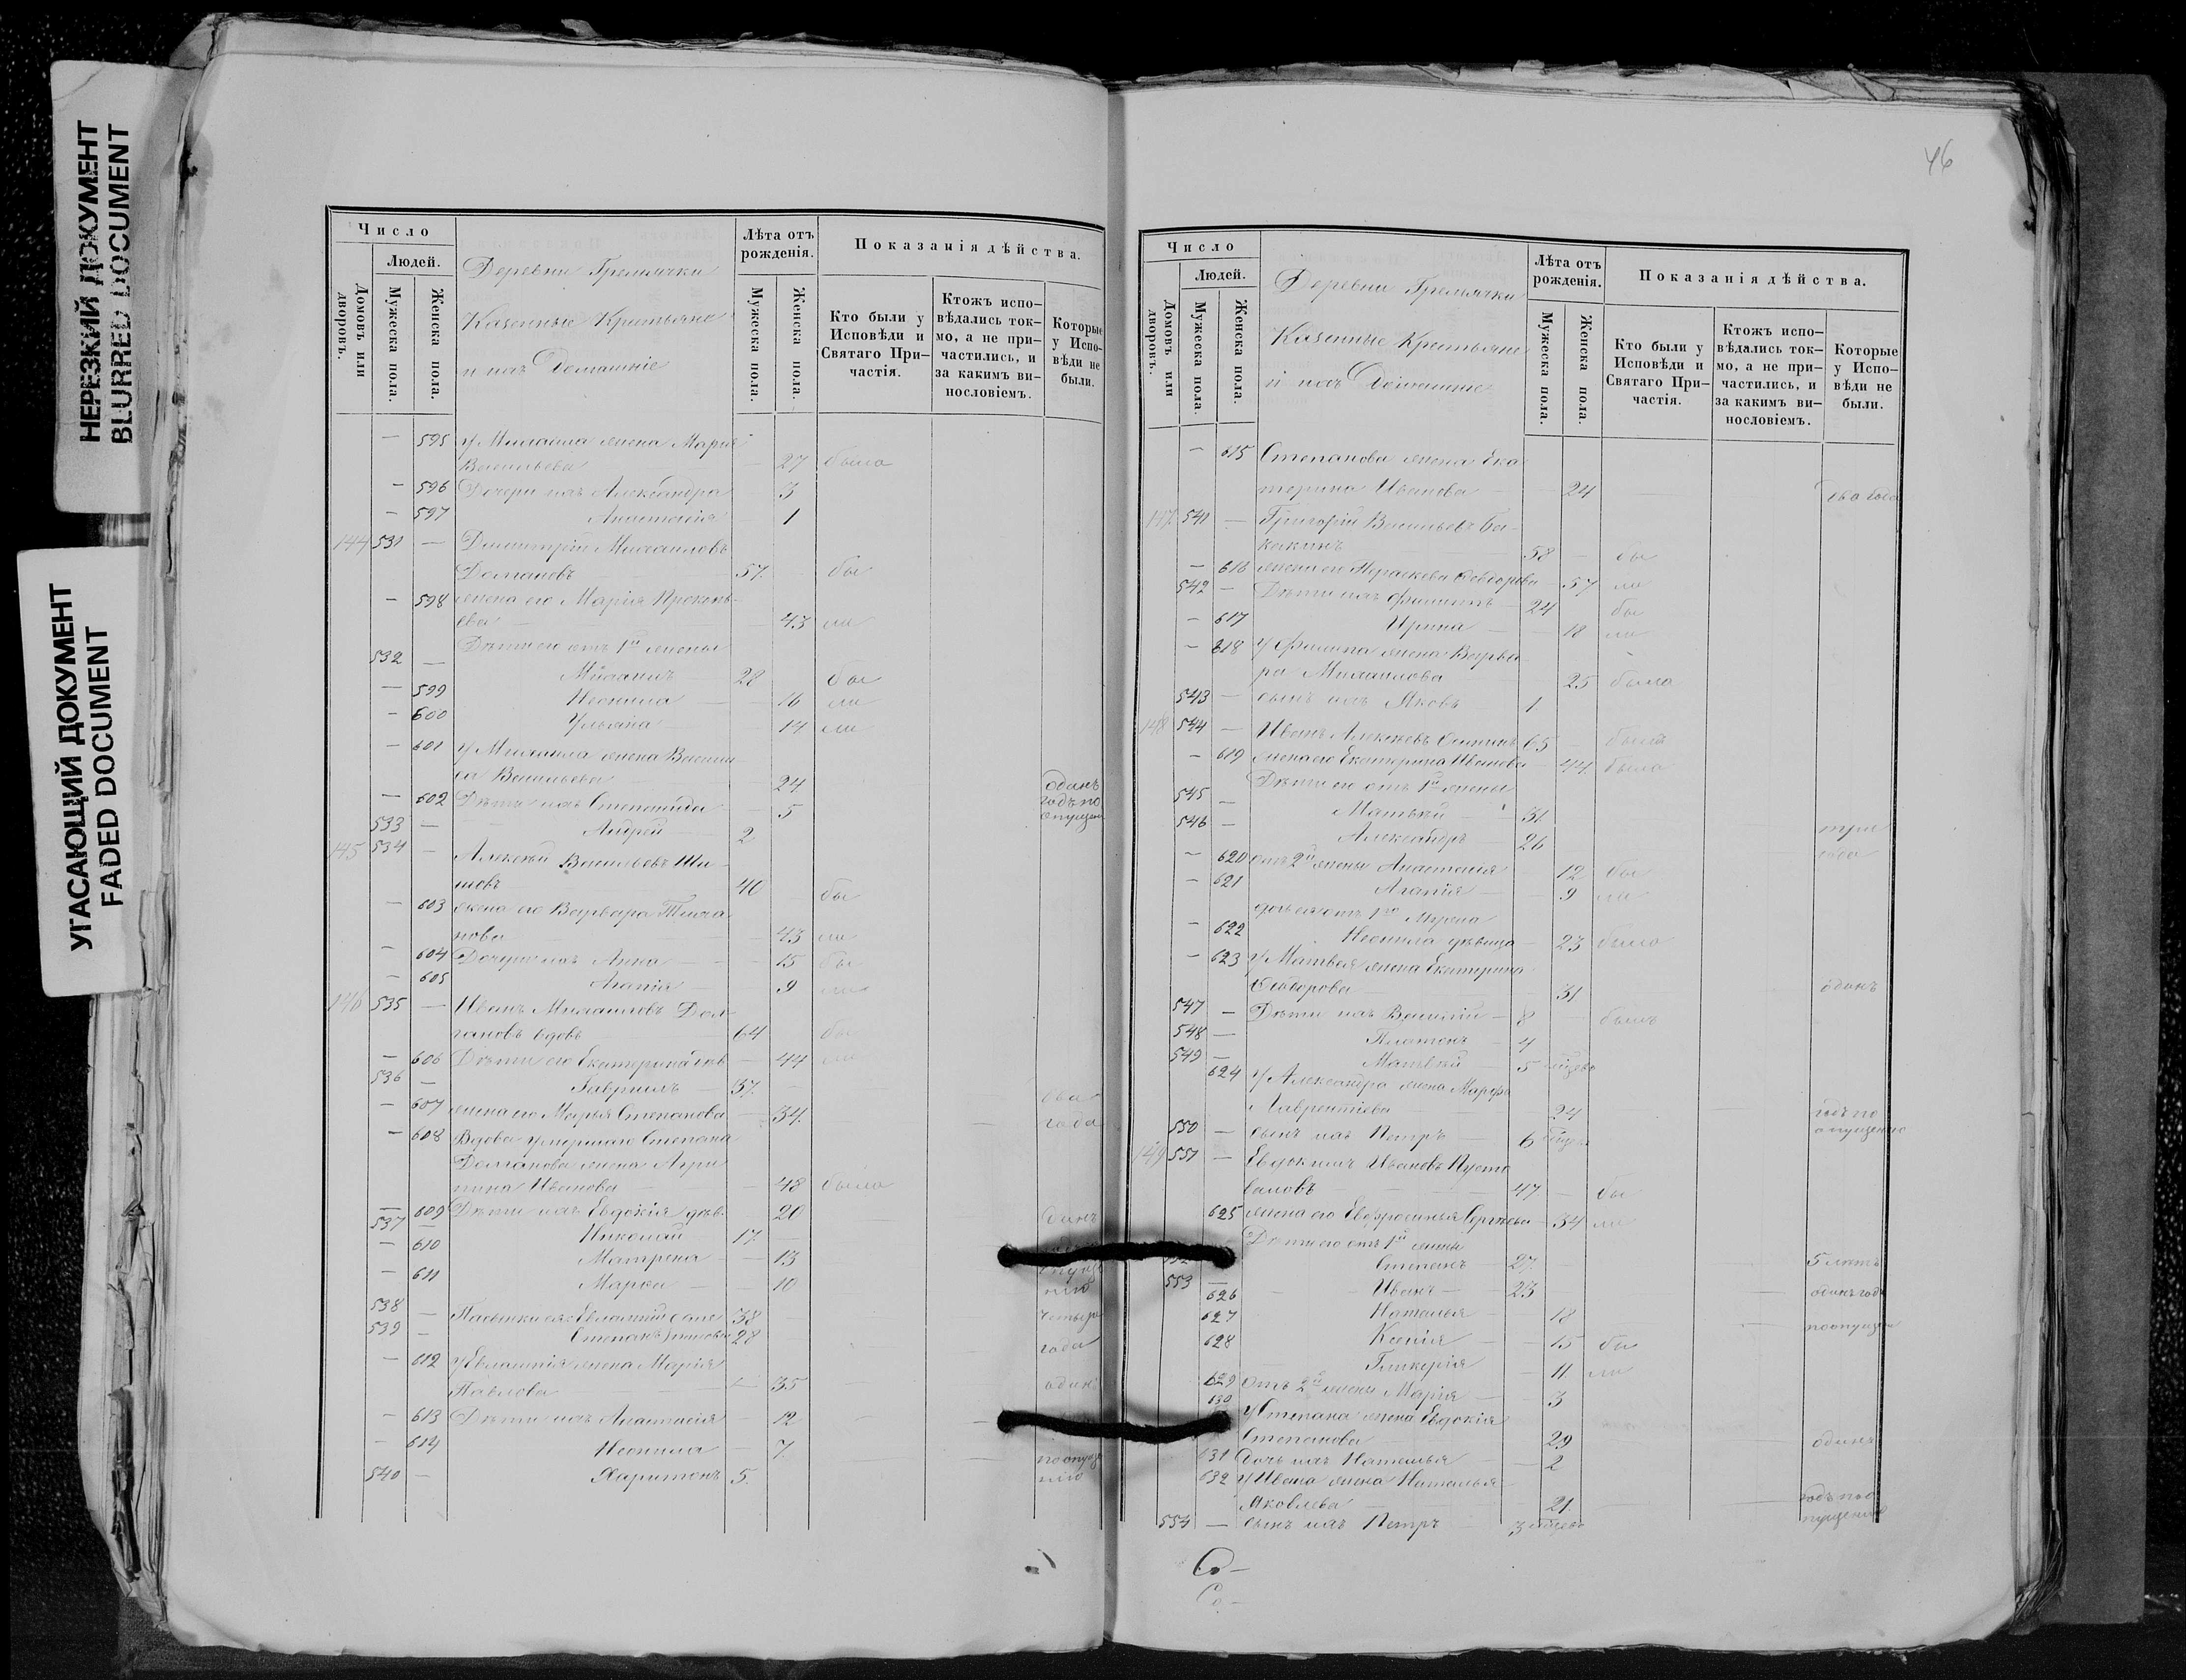 НЕРЕЗКИЙ ДОКУМЕНТ
BLURRED DOCUMENT
УГАСАЮЩИЙ ДОКУМЕНТ
FADED DOCUMENT
Число
Людей.
Домовъ или дворовъ.
Мужеска пола.
Женска пола.
Деревни Гремячки
Казенные Крестьяне
и ихъ Домашніе
Лѣта отъ рожденія.
Мужеска пола.
Женска пола.
Показанія дѣйства.
Кто были у Исповѣди и Святаго При-частія.
Ктожъ испо-вѣдались ток-мо, а не при-частились, и за какимъ ви-нословіемъ.
Которые у Испо-вѣди не были.
— 595 у Михаила жена Марія
Васильева — 27 была
— 596 Дочери ихъ Александра 3
— 597 Анастасія 1
144 531 — Димитрій Михаиловъ
Долгановъ 57. бы
— 598 жена его Марія Прокопь-
ева 43 ли
Дѣти его отъ 1й жены
532 — Михаилъ 28 бы
— 599 Неонила 16 ли
— 600 Ульяна 14 ли
— 601 у Михаила жена Васили
са Васильева 24 одинъ
— 602 Дѣти ихъ Степанида 5 годъ по
опущен
533 — Андрей 2
145 534 — Алексѣй Васильевъ Ши-
шовъ 40 бы
— 603 жена его Варвара
нова 43 ли
— 604 Дочери ихъ Анна 15 бы
— 605 Агапія 9 ли
146 535 — Иванъ Михаиловъ Дол-
гановъ вдовъ 64 бы
— 606 Дѣти его Екатерина 44 ли
536 — Гавріилъ 37.
— 607 жена его Марья Степанова 34. два
года
— 608 Вдова умершаго Степана
Долганова жена Агри
пина Иванова 48 была
— 609 Дѣти ихъ Евдокія дѣв. 20 одинъ
537 — Николай 17.
— 610 Матрена 13
— 611 Марѳа 10
538 — Пасынки ея: Евлампій 38 четыре
539 — Степанъ 28 года
— 612 у Евлампія жена Марія
Павлова 35 одинъ
— 613 Дѣти ихъ Анастасія 12
— 614 Неонила 7. по опуще
нію
540 — Харитонъ 5.
46
Число
Людей.
Домовъ или дворовъ.
Мужеска пола.
Женска пола.
Деревни Гремячки
Казенные Крестьяне
и ихъ Домашніе
Лѣта отъ рожденія.
Мужеска пола.
Женска пола.
Показанія дѣйства.
Кто были у Исповѣди и Святаго При-частія.
Ктожъ испо-вѣдались ток-мо, а не при-частились, и за какимъ ви-нословіемъ.
Которые у Испо-вѣди не были.
— 615 Степанова жена Ека
терина Иванова 24 два года
147. 541 — Григорій Васильевъ Ба-
какинъ 58 бы
— 616 жена его Параскева Ѳеодорова 57 ли
542 — Дѣти ихъ Филиппъ 24 бы
— 617 Ирина 18 ли
— 618 у Филиппа жена Варва
ра Михаилова 25 была
543 — сынъ ихъ Яковъ 1
148 544 — Иванъ Алексѣевъ 65 былъ
— 619 жена его Екатерина Иванова 44 была
Дѣти его отъ 1й жены
545 — Матвѣй 31
546 — Александръ 26 три
года
— 620 отъ 2й жены Анастасія 12 бы
— 621 Агапія 9 ли
дочь ея отъ 1го мужа
— 622 Неонила дѣвица 23 была
— 623 у Матвѣя жена Екатерина
Ѳеодорова 31 одинъ
547 — Дѣти ихъ Василій 8 былъ
548 — Платонъ 4
549 — Матвѣй 5
624 у Александра жена Марѳа
Лаврентіева 24 годъ по
опущенію
550 — сынъ ихъ Петръ 6
149 551 — Евдокимъ Ивановъ Пусто
валовъ 47 бы
625 жена его Евфросинья Сергѣева 34 ли
Дѣти его отъ 1й жены
552 Степанъ 27. 5 лѣтъ
553 — Иванъ 23 одинъ годъ
626 Наталья 18 по опущен
627 Ксенія 15 бы
628 Гликерія 11 ли
629 отъ 2й жены Марія 3
630 у Степана жена Евдокія
Степанова 29 одинъ
631 дочь ихъ Наталья 2
632 у Ивана жена Наталья
Яковлева 21. годъ по о
пущенію
554 — сынъ ихъ Петръ 3
Со-
Со-